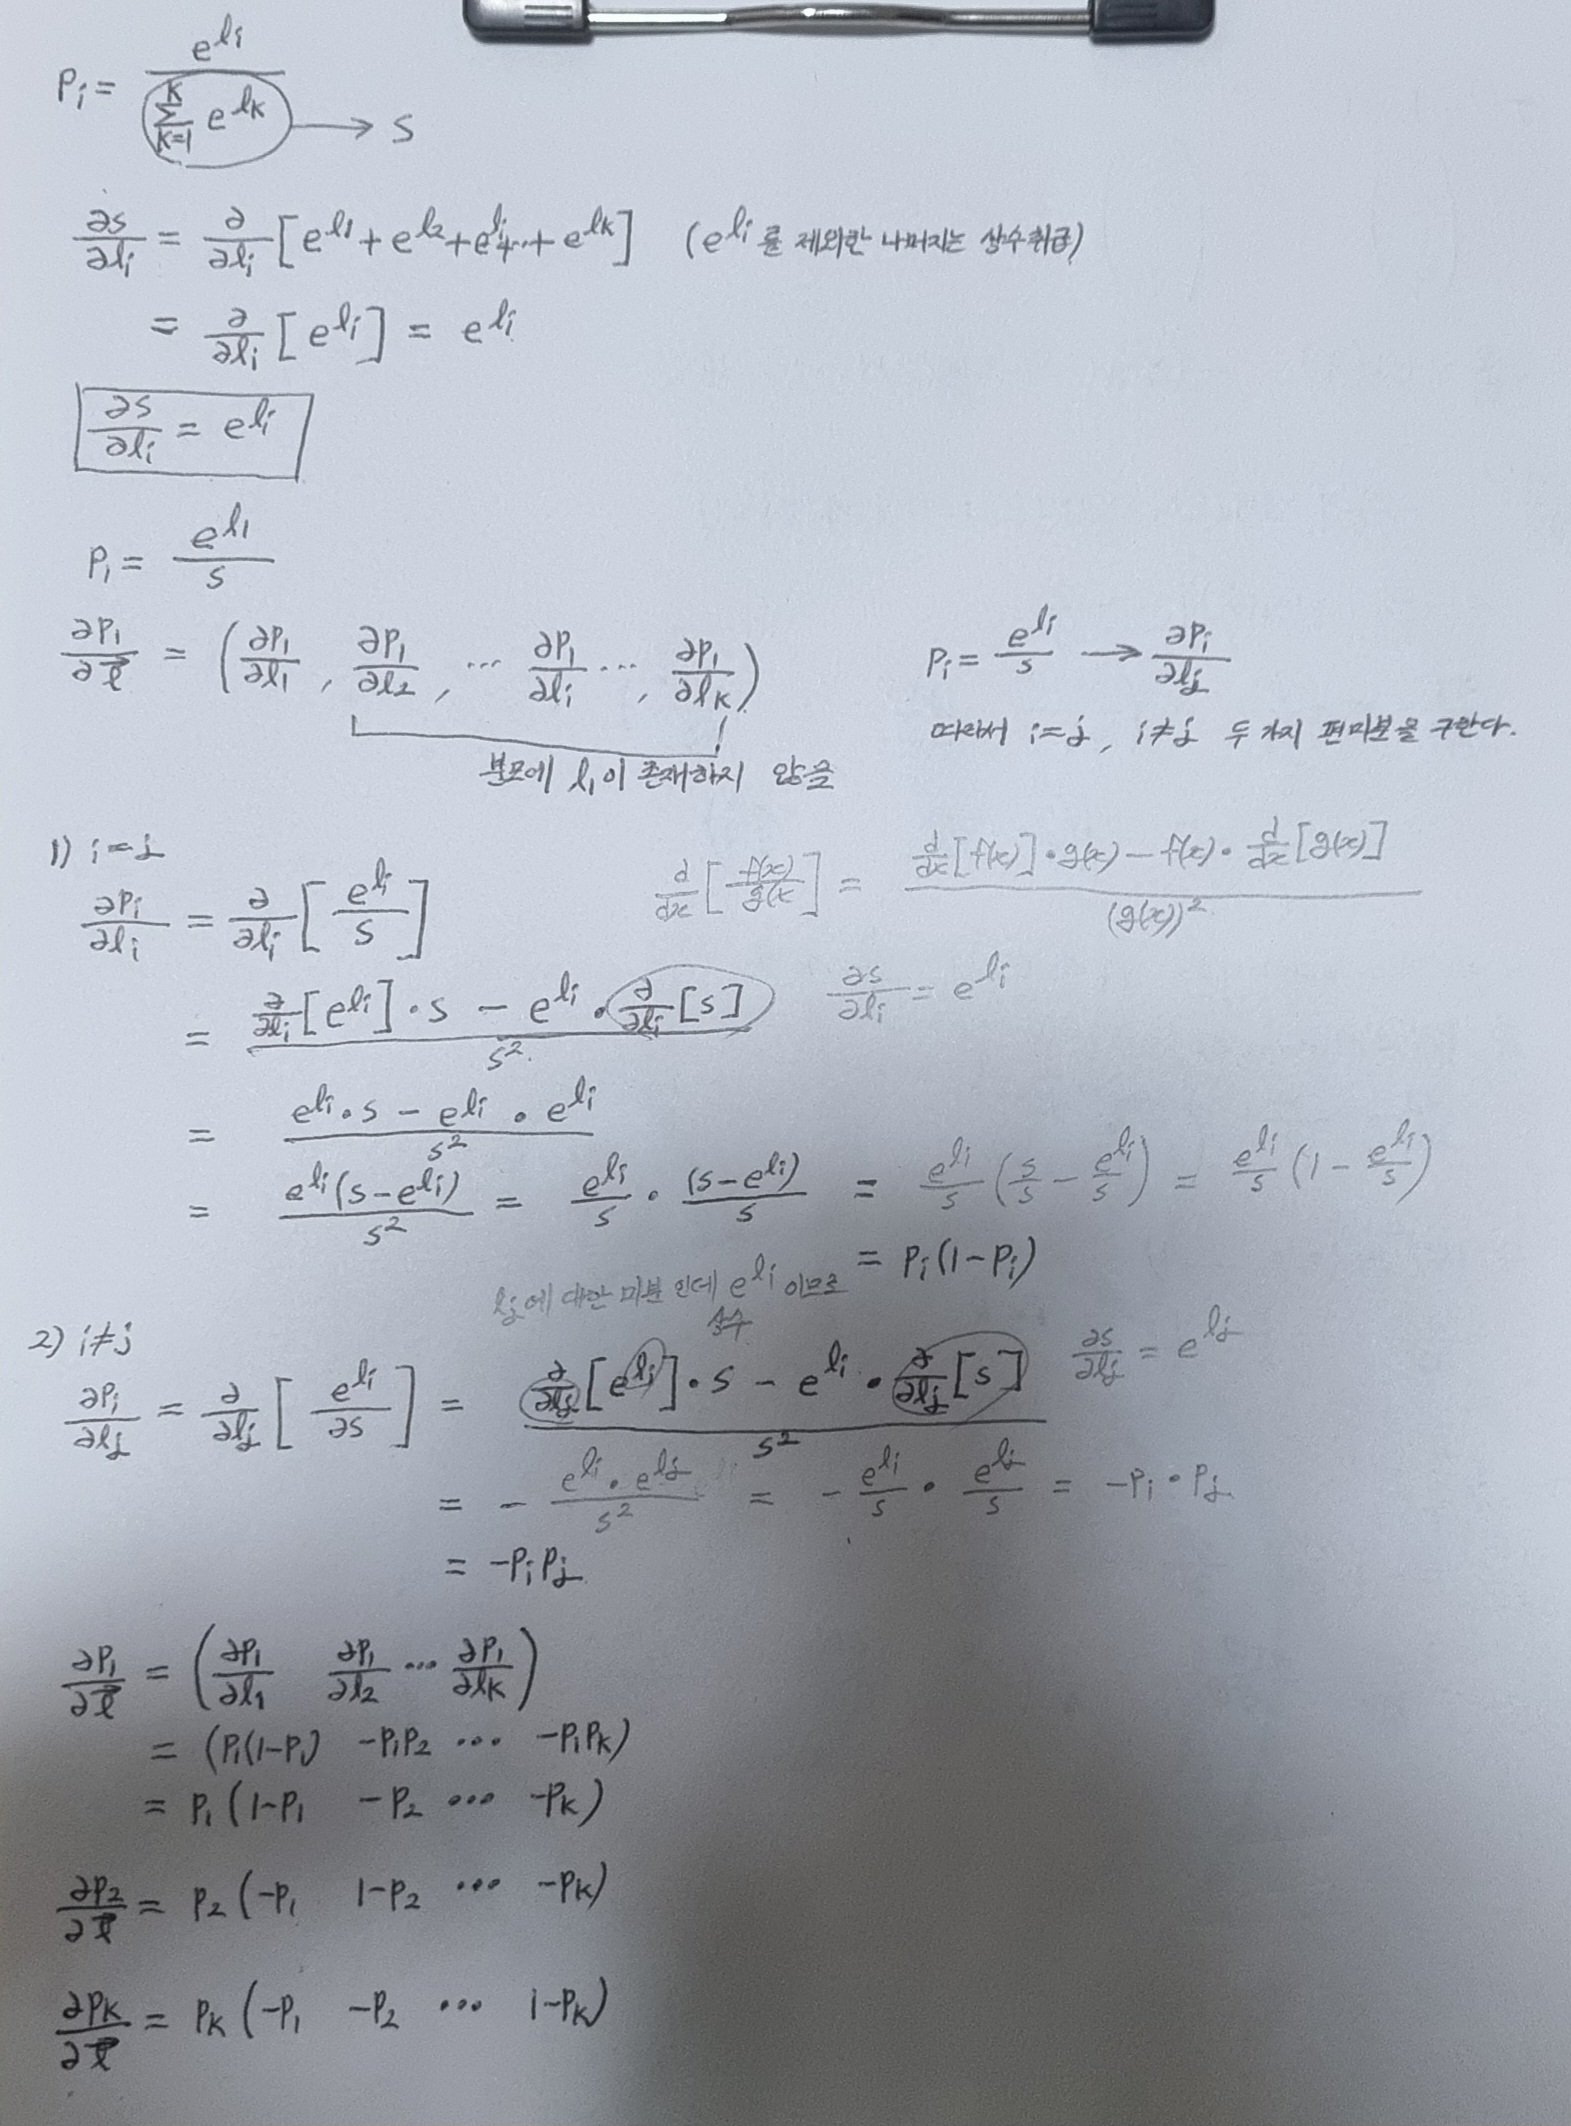 Pᵢ = e^lᵢ / Σ_{K=1}^{K} e^lK → S
∂S/∂lᵢ = ∂/∂lᵢ [e^l₁ + e^l₂ + e^lᵢ + ... + e^lK] (e^lᵢ를 제외한 나머지는 상수취급)
= ∂/∂lᵢ [e^lᵢ] = e^lᵢ
∂S/∂lᵢ = e^lᵢ
P₁ = e^l₁ / S
∂P₁/∂l⃗ = (∂P₁/∂l₁, ∂P₁/∂l₂, ... ∂P₁/∂lᵢ ..., ∂P₁/∂lK)
분모에 l₁이 존재하지 않음
Pᵢ = e^lᵢ / S → ∂Pᵢ/∂lⱼ
따라서 i=j, i≠j 두 가지 편미분을 구한다.
1) i=j
d/dx [f(x)/g(x] = (d/dx[f(x)]·g(x) − f(x)·d/dx[g(x)]) / (g(x))²
∂Pᵢ/∂lᵢ = ∂/∂lᵢ [e^lᵢ / S]
= (∂/∂lᵢ[e^lᵢ]·S − e^lᵢ·∂/∂lᵢ[S]) / S² ∂S/∂lᵢ = e^lᵢ
= (e^lᵢ·S − e^lᵢ·e^lᵢ) / S²
= e^lᵢ(S−e^lᵢ) / S² = e^lᵢ/S · (S−e^lᵢ)/S = e^lᵢ/S (S/S − e^lᵢ/S) = e^lᵢ/S (1 − e^lᵢ/S)
= Pᵢ(1−Pᵢ)
lⱼ에 대한 미분인데 e^lᵢ 이므로
상수
2) i≠j
∂Pᵢ/∂lⱼ = ∂/∂lⱼ [e^lᵢ / ∂S] = (∂/∂lⱼ[e^lᵢ]·S − e^lᵢ·∂/∂lⱼ[S]) / S² ∂S/∂lⱼ = e^lⱼ
= − e^lᵢ·e^lⱼ / S² = − e^lᵢ/S · e^lⱼ/S = −Pᵢ·Pⱼ
= −PᵢPⱼ
∂P₁/∂l⃗ = (∂P₁/∂l₁ ∂P₁/∂l₂ ... ∂P₁/∂lK)
= (P₁(1−P₁) −P₁P₂ ... −P₁PK)
= P₁(1−P₁ −P₂ ... −PK)
∂P₂/∂l⃗ = P₂(−P₁ 1−P₂ ... −PK)
∂PK/∂l⃗ = PK(−P₁ −P₂ ... 1−PK)